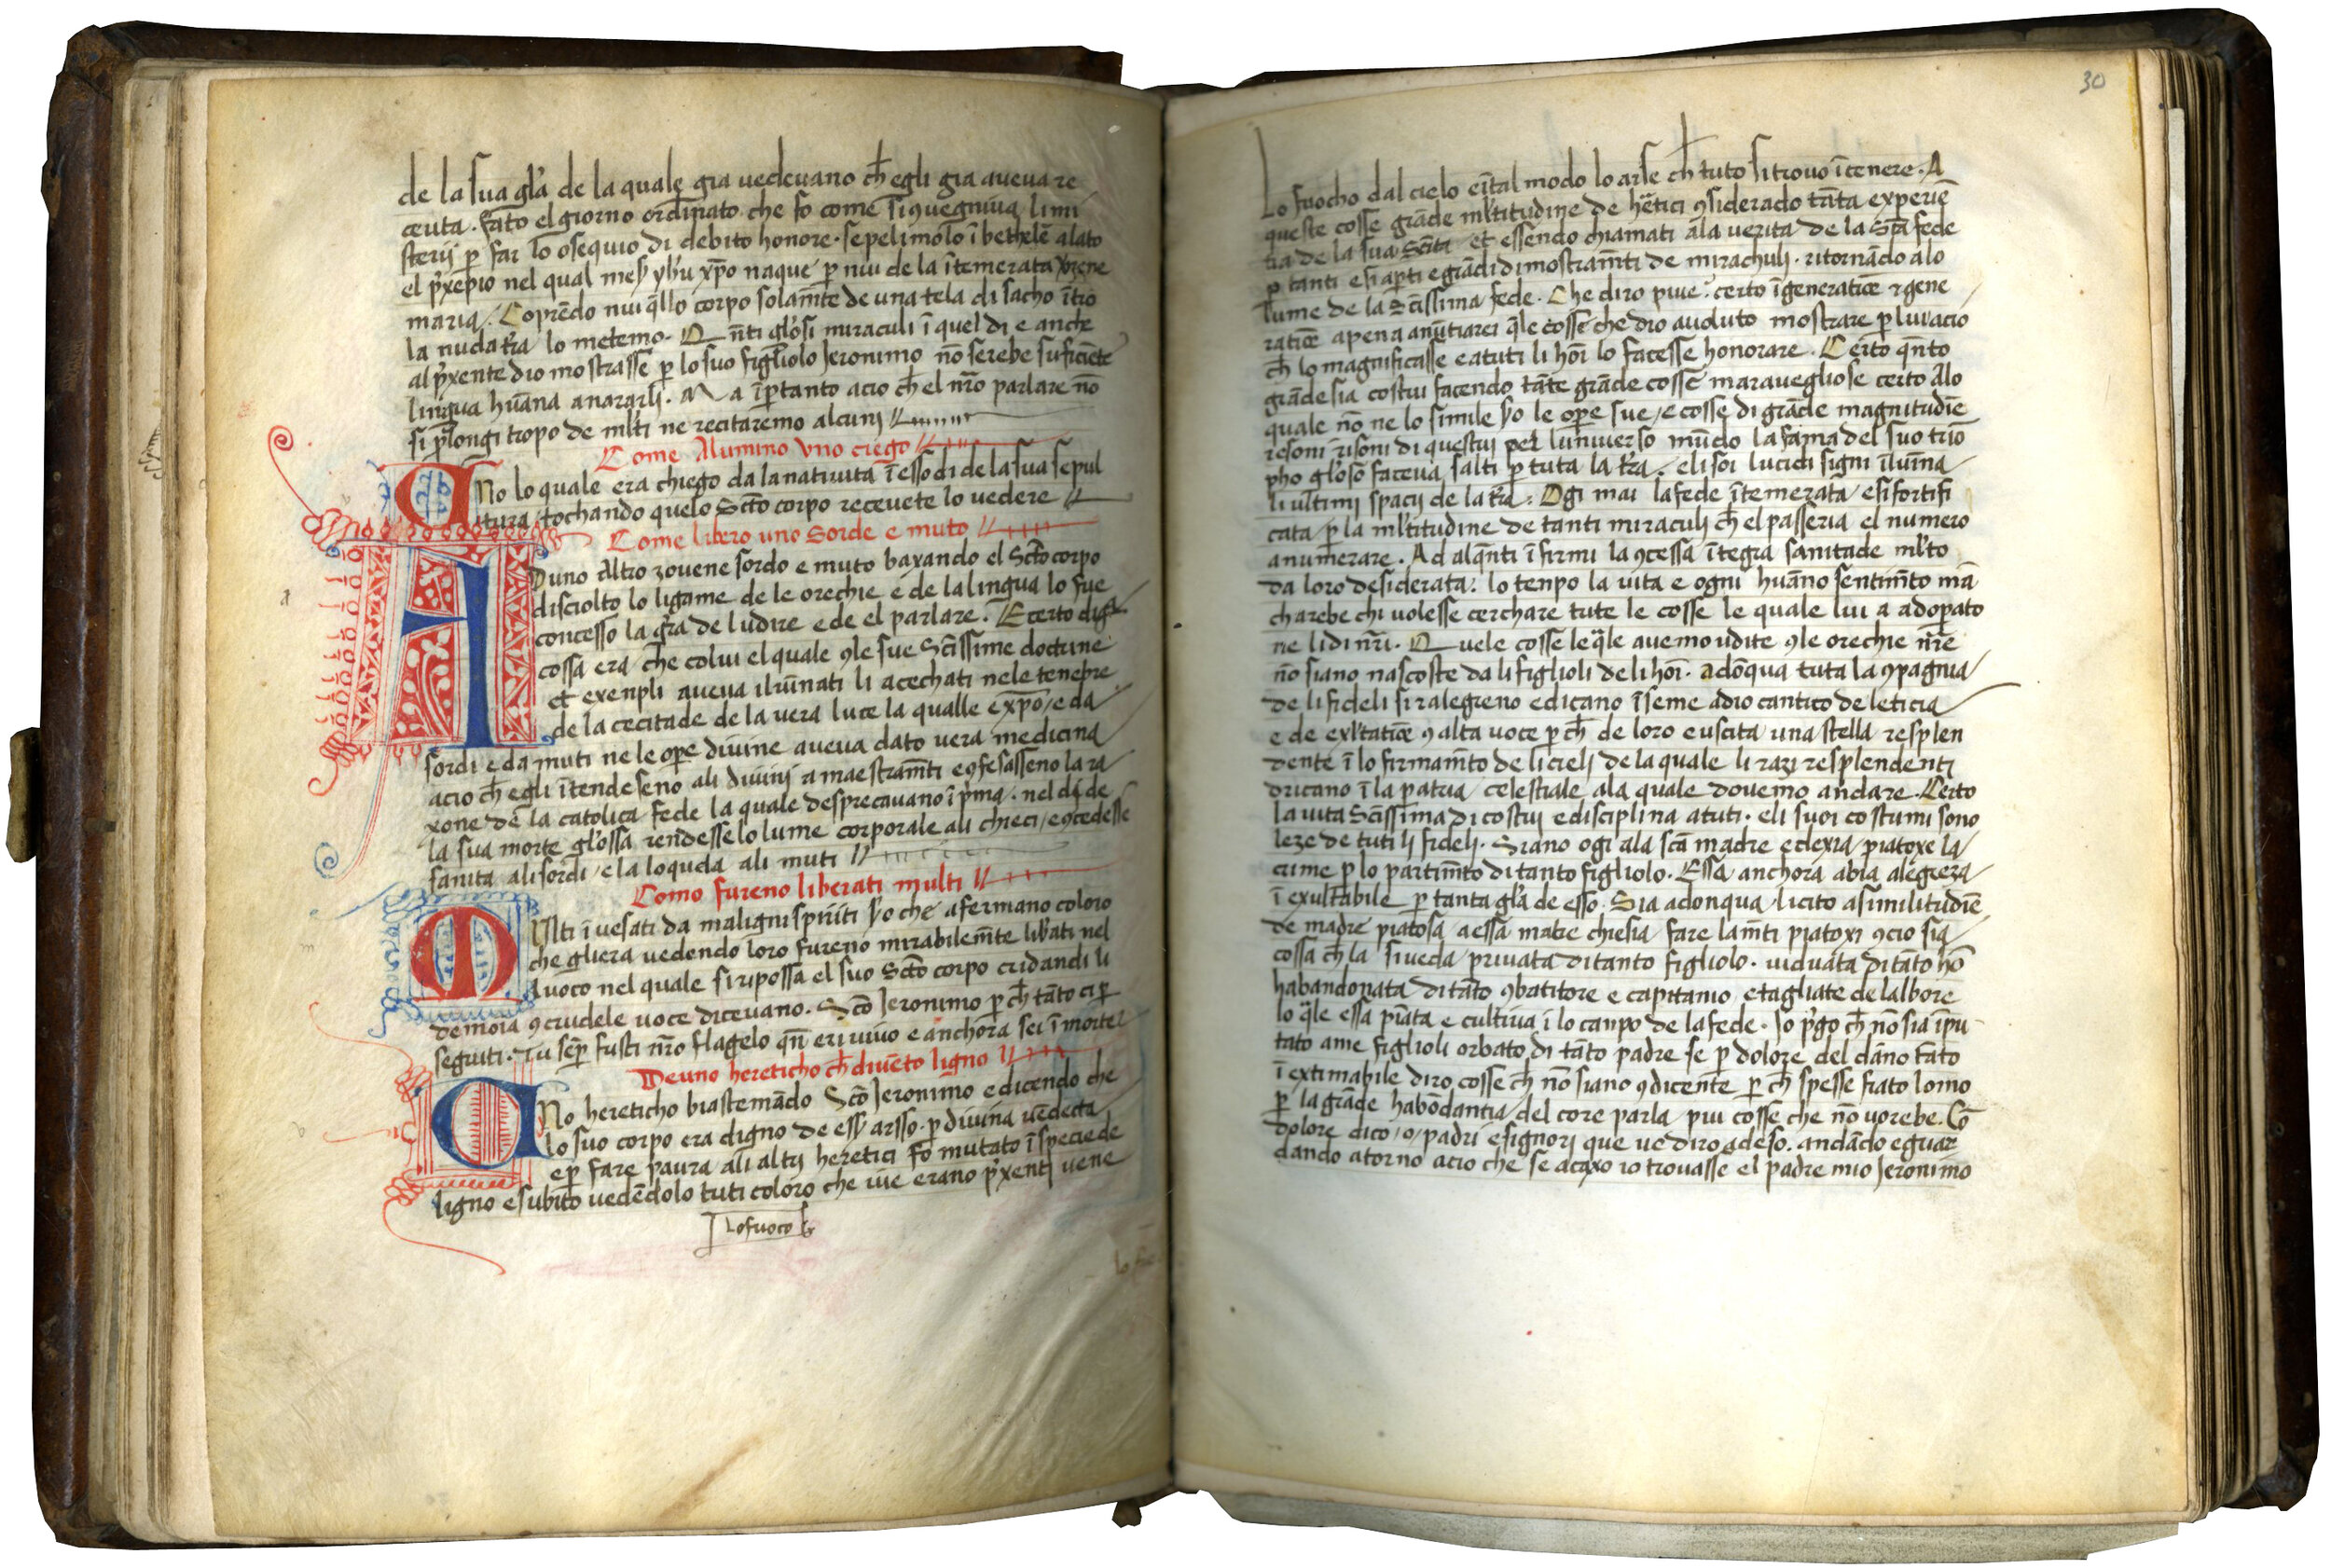 de la sua gl̃a de la quale gia vedevano ch̃ egli gia aveva re
ceuta . fato el giorno ordinato . che fo come si
sterij p̱ far lo osequio di debito honore . sepelimolo ĩ bethelẽ alato
el nel qual xp̃o naque . p̱ de la ĩtemerata
maria . Coprẽdo nui q̃llo corpo solam̃te de una tela di sacho ĩtro
la nuda t̃ra lo metemo . Q nti gl̃osi miraculi ĩ quel di e anche
al dio mostrasse p̱ lo suo figliolo Jeronimo nõ serebe suficiẽte
lingua hũana anararli . M a ĩp̱tanto acio ch̃ el nr̃o parlare nõ
si p̱longi tropo de ml̃ti ne recitaremo alcunj
Come Alumino vno ciego
No lo quale era chiego da la natiuita ĩ esso di de la sua sepul
tura / tochando quelo Sc̃to corpo recevete lo vedere
Come libero uno Sorde e muto
Duno Altro zovene sordo e muto baxando el Sc̃to corpo
disciolto lo ligame de le orechie e de la lingua lo fue
concesso la gr̃a de ludire e de el parlare . E certo
cossa era / che colui el quale ꝯle sue Sc̃issime doctrine
et exenpli aueva ilũinati li acechati ne le tenebre
de la cecitade de la vera luce la qualle e xp̃o / e da
sordi e da muti ne le op̱e divine aueva dato vera medicina
acio ch̃ egli ĩtendeseno ali divinj amaestram̃ti e ꝯfesasseno la ra
xone de la catolica fede la quale desprecavano ĩ p̃ma . nel di de
la sua morte gl̃ossa rendesse lo lume corporale ali chieci / e ꝯcedesse
sanita ali sordi / e la loquela ali muti
Como fureno liberati multi
Vlti ĩ vesati da maligni spiriti che afermano coloro
che gliera vedendo loro fureno mirabilem̃te lib̃ati nel
luoco nel quale si ripossa el suo Sc̃to corpo cridandi li
demoia ꝯ crudele voce dicevano . Sc̃o Jeronimo p̱ ch̃ tãto ci p̱
seguiti . Tu sẽp̱ fusti nr̃o flagelo qñ eri vivo e anchora sei ĩ morte
De uno hereticho ch̃ diuẽto ligno
No hereticho biastemãdo Sc̃o Jeronimo e dicendo che
lo suo corpo era digno de arsso . p̱ divina vẽdecta
e p̱ fare paura / ali altrj heretici fo mutato ĩ specie de
ligno e subito vedẽdolo tuti coloro che iue erano vene
Lo fuoco
30
Lo fuocho dal cielo e ĩ tal modo lo arse ch̃ tuto si trovo ĩ cenere . A
queste cosse grãde ml̃titudine de ꝯsiderado tãta experiẽ
tia de la sua Sc̃ita / et essendo chiamati ala verita de la Sc̃a fede
p̱ tanti e si ap̱ti e grãdi dimostram̃ti de mirachulj . ritornãdo alo
lume de la Sc̃issima fede . Che diro piue ? certo ĩ generatiõe
ratiõe apena anũtiarei q̃le cosse che dio a voluto mostrare p̱ lui acio
ch̃ lo magnificasse e atuti li hoĩ lo facesse honorare . Certo
grãde sia costui facendo tãte grãde cosse maravegliose certo Alo
quale nõ ne lo simile le op̱e sue / e cosse di grãde magnitudie
resoni di questui per luniverso mũdo la fama del suo triõ
pho gl̃oso faceva salti p̱ tuta la t̃ra . e li soi lucidi signi ilũina
li ultimi spacij de la t̃ra . Ogi mai la fede ĩtemerata / e si fortifi
cata / p̱ la ml̃titudine de tanti miraculj ch̃ el passeria el numero
a numerare . Ad alq̃nti ĩ firmi la ꝯcessa ĩtegra sanitade ml̃to
da loro desiderata . lo tenpo la vita e ogni hũano sentim̃to mã
charebe chi volesse cerchare tute le cosse le quale lui a adop̱ato
ne li di nr̃i . Quele cosse le q̃le avemo vdite ꝯle orechie nr̃e
nõ siano nascoste da li figlioli de li hoĩ . adõqua tuta la ꝯpagnia
de li fideli si ralegreno e dicano ĩseme adio cantico de leticia
e de exl̃tatiõe ꝯ alta voce p̱ ch̃ de loro e vscita una stella resplen
dente ĩ lo firmam̃to de li cielj de la quale li razi resplendenti
dricano ĩ la patria / celestiale ala quale dovemo andare . Certo
la vita Sc̃issima di costui e disciplina a tuti . e li suoi costumi sono
leze de tuti li fidelj . Siano ogi ala sc̃a madre eclexia / piatoxe la
crime p̱ lo partim̃to di tanto figliolo . Essa anchora abia alegreza
ĩ exultabile p̱ tanta gl̃a de esso . Sia adonqua / licito a similitudie
de madre piatosa / a essa matre chiesia / fare lam̃ti piatoxi ꝯcio sia
cossa ch̃ la si veda / privata di tanto figliolo . viduata di tãto hõ
habandonata di tãto ꝯbatitore e capitanio e tagliate de lalbore
lo q̃le essa piãta e cultiva ĩ lo canpo de la fede . Io p̱go ch̃ nõ sia ĩpu
tato ame figlioli orbato di tãto padre se p̱ dolore del dãno fato
ĩ extimabile diro cosse ch̃ nõ siano ꝯdicente p̱ ch̃ spesse fiato lomo
p̱ la grãde habõdantia / del core parla / piu cosse che nõ vorebe . Cõ
dolore dico / o / padri e signorj que ve diro adeso . andãdo e guar
dando atorno acio che se acaxo io trovasse el padre mio Jeronimo